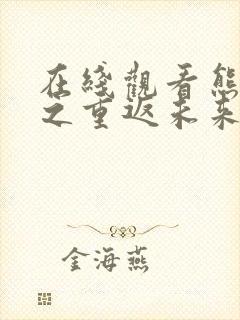 在綫觀看熊
之重返未来
金海燕